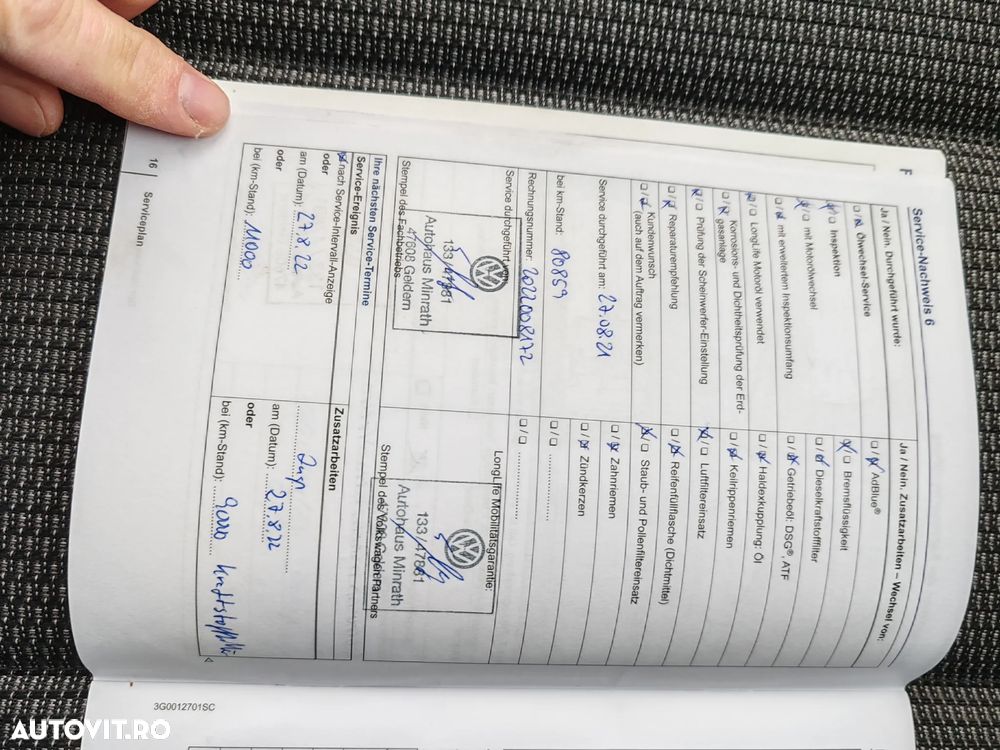 Service-Nachweis 6
Ja / Nein. Durchgeführt wurde:
Ölwechsel-Service
Inspektion
mit Motorölwechsel
mit erweitertem Inspektionsumfang
LongLife Motoröl verwendet
Korrosions- und Dichtheitsprüfung der Erd-
gasanlage
Prüfung der Scheinwerfer-Einstellung
Reparaturempfehlung
Kundenwunsch
(auch auf dem Auftrag vermerken)
Service durchgeführt am: 27.08.21
bei km-Stand: 80859
Rechnungsnummer: 2022008172
Service durchgeführt von:
133/47861
Autohaus Minrath
47608 Geldern
Stempel des Fachbetriebs
Ja / Nein. Zusatzarbeiten – Wechsel von:
AdBlue®
Bremsflüssigkeit
Dieselkraftstofffilter
Getriebeöl: DSG®, ATF
Haldexkupplung: Öl
Keilrippenriemen
Luftfiltereinsatz
Reifenfüllflasche (Dichtmittel)
Staub- und Pollenfiltereinsatz
Zahnriemen
Zündkerzen
LongLife Mobilitätsgarantie:
133/47861
Autohaus Minrath
Stempel des Volkswagen Partners
Ihre nächsten Service-Termine
Service-Ereignis
nach Service-Intervall-Anzeige
oder
am (Datum): 27.8.22
oder
bei (km-Stand):
Zusatzarbeiten
Insp
am (Datum): 27.8.22
oder
bei (km-Stand):
16 | Serviceplan
3G0012701SC
AUTOVIT.RO